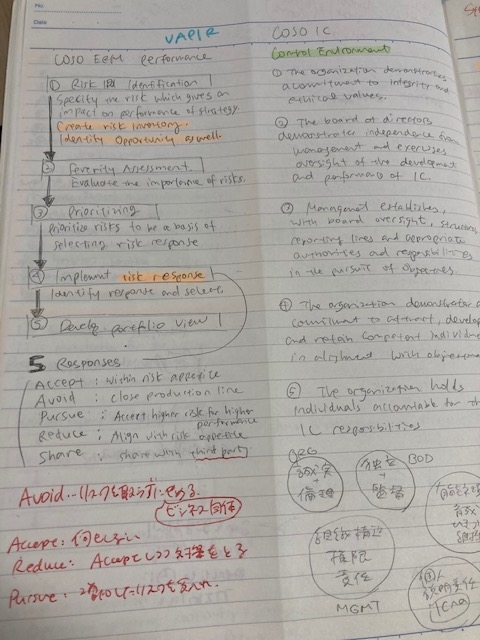 No.
Date
VAPIR
COSO ERM Performance
① Risk Identification
Specify the risk which gives an
impact on performance of strategy.
Create risk inventory.
Identify Opportunity as well.
② Severity Assessment.
Evaluate the importance of risks.
③ Prioritizing
Prioritize risks to be a basis of
selecting risk response
④ Implement risk response
Identify response and select.
⑤ Develop portfolio view
5 Responses
Accept : within risk appetite
Avoid : close production line
Pursue : Accept higher risk for higher
performance
Reduce : Align with risk appetite
Share : share with third part
Avoid リスクを取らず
Accept : 何もしない
Reduce : Accept しつつ対策をとる
Pursue :
COSO IC
Control Environment
① The organization demonstrates
a commitment to integrity and
ethical values.
② The board of directors
demonstrates independence from
management and exercises
oversight of the development
and performance of IC.
③ Management establishes,
with board oversight, structures
reporting lines and appropriate
authorities and responsibilities
in the pursuit of objectives
④ The organization demonstrates a
commitment to attract, develop
and retain competent individuals
in alignment with objectives
⑤ The organization holds
individuals accountable for the
IC responsibilities
ORG
誠実
+
倫理
BOD
独立
+
監督
組織構造
権限
責任
MGMT
個人
説明責任